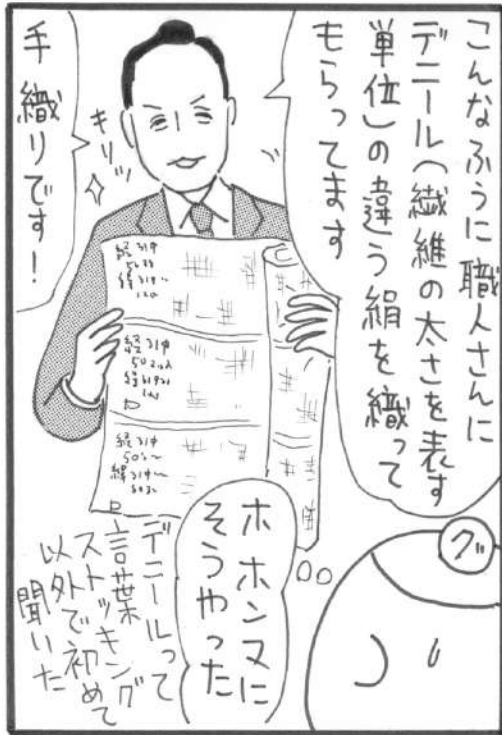 こんなふうに職人さんに
デニール(繊維の太さを表す
単位)の違う絹を織って
もらってます
キリッ
手織りです!
経
緯
経
50
緯
経
50
緯
グ
ホ ホンマに
そうやった
デニールって
言葉
ストッキング
以外で初めて
聞いた